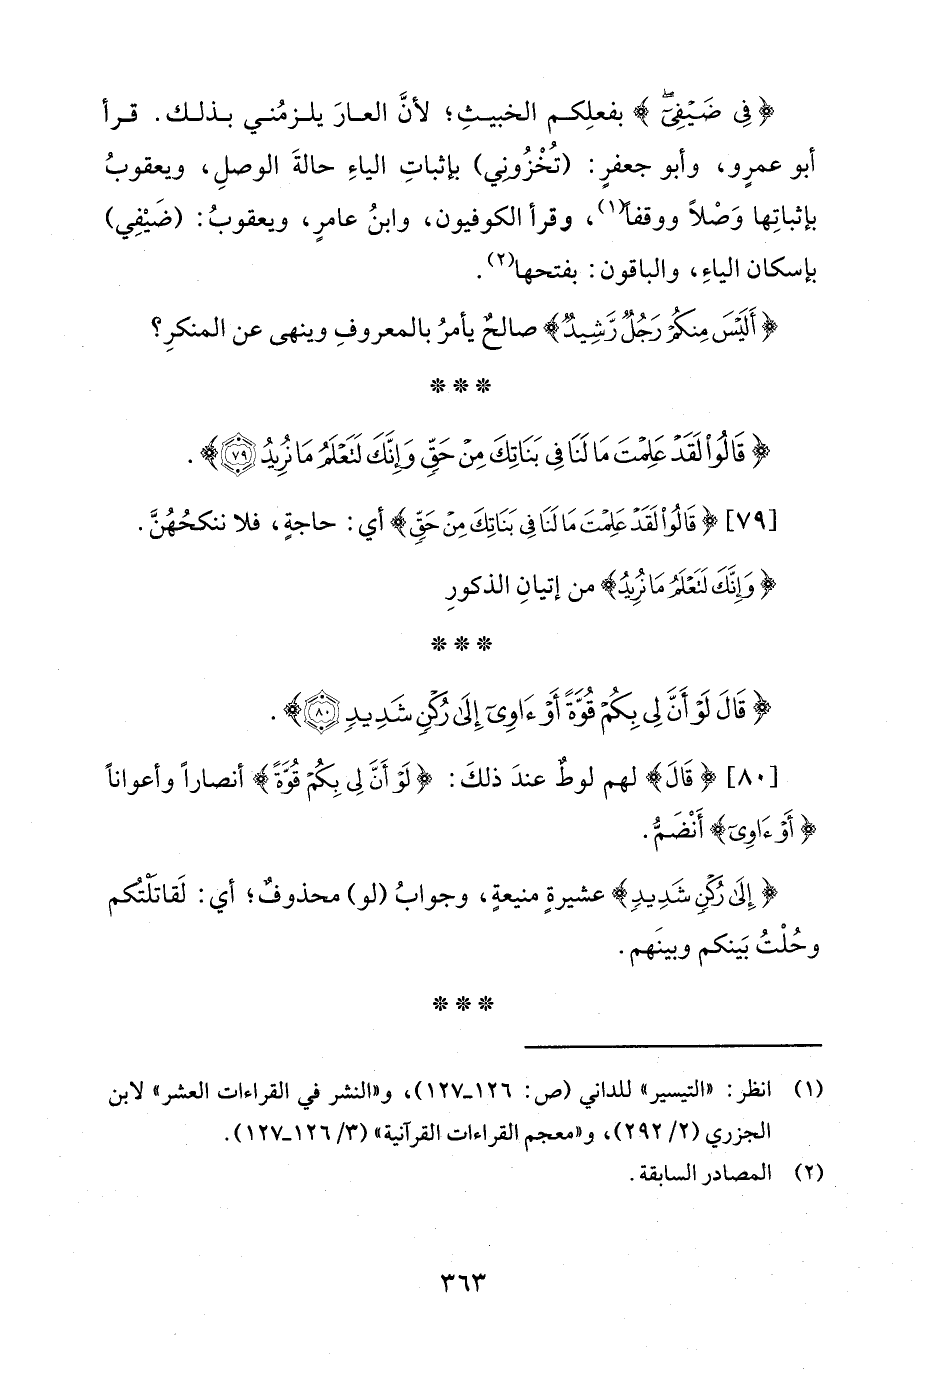 ﴿ فِى ضَيْفِىٓ ﴾ بفعلِكم الخبيثِ؛ لأنَّ العارَ يلزمُني بذلك. قرأ
أبو عمرٍو، وأبو جعفرٍ: (تُخْزُونِي) بإثباتِ الياءِ حالةَ الوصلِ، ويعقوبُ
بإثباتِها وَصْلاً ووقفاً(١)، وقرأ الكوفيون، وابنُ عامرٍ، ويعقوبُ: (ضَيْفِي)
بإسكان الياءِ، والباقون: بفتحها(٢).
﴿ أَلَيْسَ مِنكُمْ رَجُلٌ رَّشِيدٌ ﴾ صالحٌ يأمرُ بالمعروفِ وينهى عن المنكرِ؟
* * *
﴿ قَالُواْ لَقَدْ عَلِمْتَ مَا لَنَا فِى بَنَاتِكَ مِنْ حَقٍّ وَإِنَّكَ لَتَعْلَمُ مَا نُرِيدُ ٧٩ ﴾.
[٧٩] ﴿ قَالُواْ لَقَدْ عَلِمْتَ مَا لَنَا فِى بَنَاتِكَ مِنْ حَقٍّ ﴾ أي: حاجةٍ، فلا ننكحُهُنَّ.
﴿ وَإِنَّكَ لَتَعْلَمُ مَا نُرِيدُ ﴾ من إتيانِ الذكورِ
* * *
﴿ قَالَ لَوْ أَنَّ لِى بِكُمْ قُوَّةً أَوْ ءَاوِىٓ إِلَىٰ رُكْنٍ شَدِيدٍ ٨٠ ﴾.
[٨٠] ﴿ قَالَ ﴾ لهم لوطٌ عندَ ذلكَ: ﴿ لَوْ أَنَّ لِى بِكُمْ قُوَّةً ﴾ أنصاراً وأعواناً
﴿ أَوْ ءَاوِىٓ ﴾ أَنْضَمُّ.
﴿ إِلَىٰ رُكْنٍ شَدِيدٍ ﴾ عشيرةٍ منيعةٍ، وجوابُ (لو) محذوفٌ؛ أي: لَقاتَلْتُكم
وحُلْتُ بَينكم وبينَهم.
* * *
(١) انظر: «التيسير» للداني (ص: ١٢٦-١٢٧)، و«النشر في القراءات العشر» لابن
الجزري (٢/ ٢٩٢)، و«معجم القراءات القرآنية» (٣/ ١٢٦-١٢٧).
(٢) المصادر السابقة.
٣٦٣